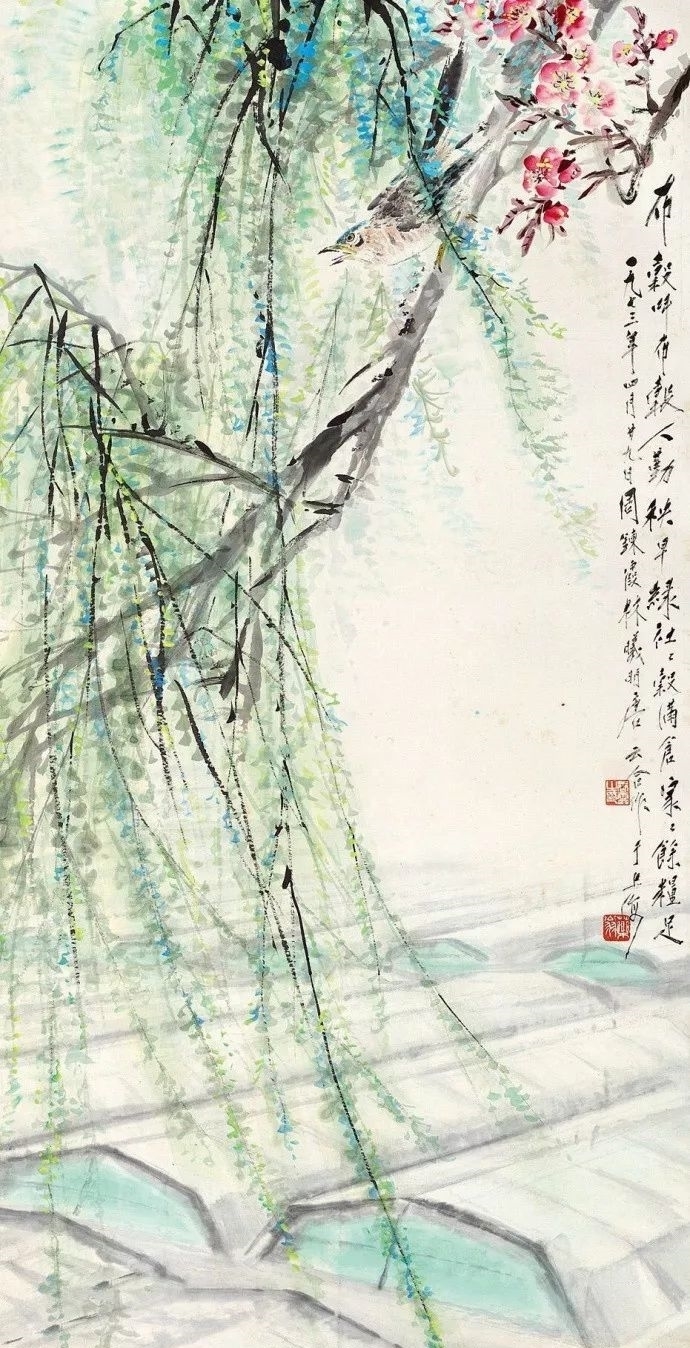 布穀呌布穀人勤秧早綠社〻穀滿倉家〻餘糧足
一九七三年四月廿九日周鍊霞林曦明唐云合作于上海
藥翁